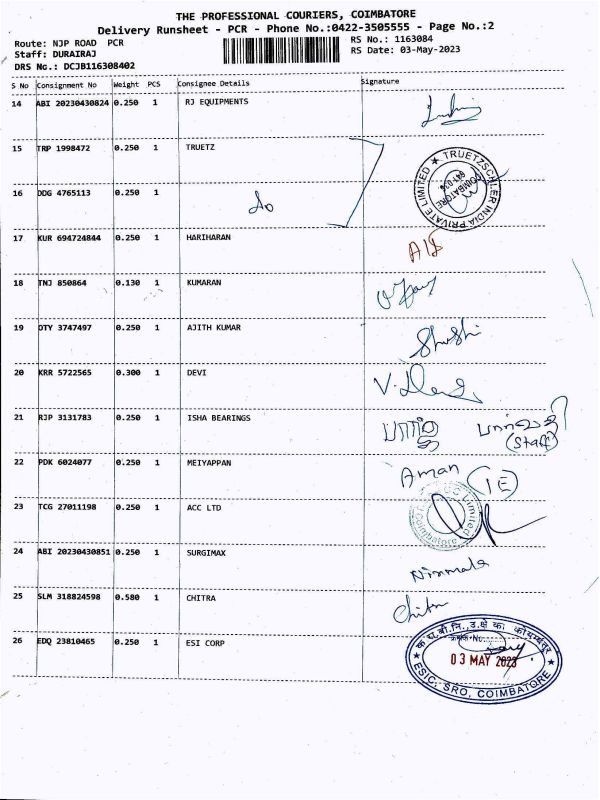 THE PROFESSIONAL COURIERS, COIMBATORE
Delivery Runsheet - PCR - Phone No.:0422-3505555 - Page No.:2
Route: NJP ROAD PCR
RS No.: 1163084
Staff: DURAIRAJ
RS Date: 03-May-2023
DRS No.: DCJB116308402
S No Consignment No Weight PCS Consignee Details Signature
14 ABI 20230430824 0.250 1 RJ EQUIPMENTS
15 TRP 1998472 0.250 1 TRUETZ
TRUETZSCHLER INDIA PRIVATE LIMITED
COIMBATORE
16 DDG 4765113 0.250 1 do
17 KUR 694724844 0.250 1 HARIHARAN
18 TNJ 850864 0.130 1 KUMARAN
19 OTY 3747497 0.250 1 AJITH KUMAR
20 KRR 5722565 0.300 1 DEVI
21 RJP 3131783 0.250 1 ISHA BEARINGS
(Staff)
22 PDK 6024077 0.250 1 MEIYAPPAN Aman (IE)
23 TCG 27011198 0.250 1 ACC LTD
Limited
Coimbatore
24 ABI 20230430851 0.250 1 SURGIMAX Nirmala
25 SLM 318824598 0.580 1 CHITRA Chitra
26 EDQ 23810465 0.250 1 ESI CORP
क.रा.बी.नि., उ.क्षे का कोयम्बत्तूर
03 MAY 2023
ESIC, SRO, COIMBATORE